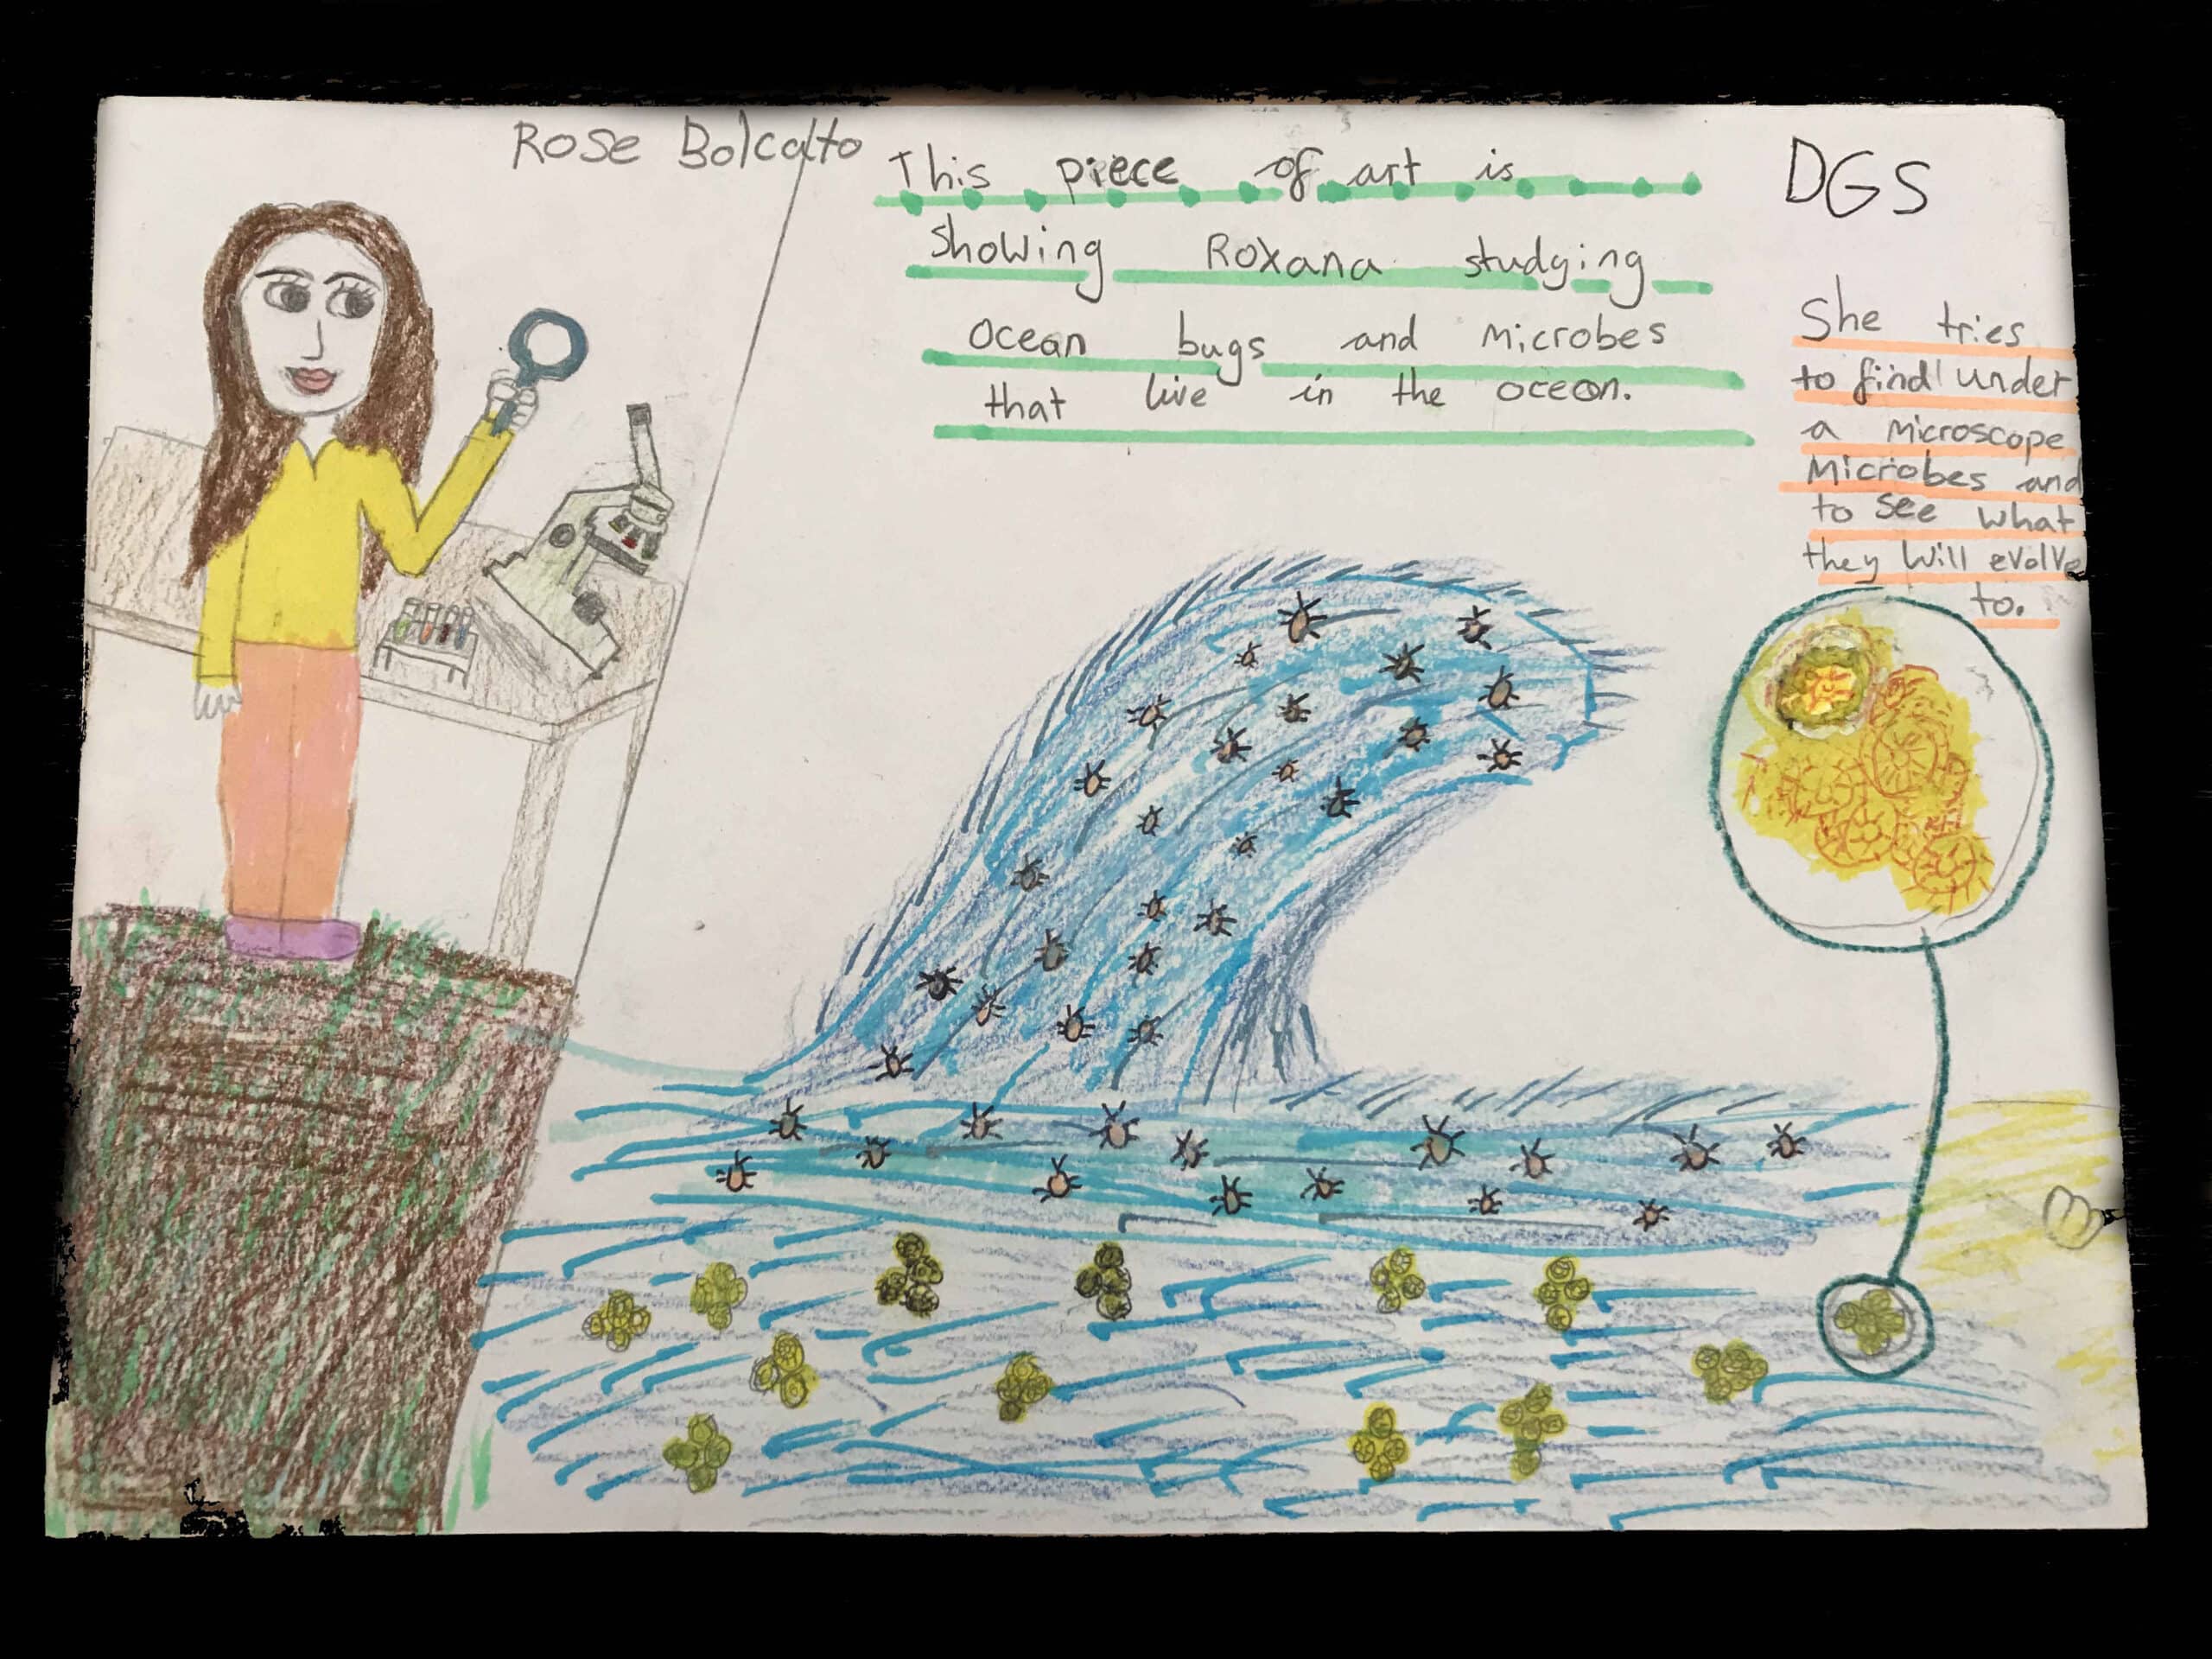 Rose Bolcato
This piece of art is
showing Roxana studying
ocean bugs and microbes
that live in the ocean.
DGS
She tries
to find under
a microscope
Microbes and
to see what
they will evolve
to.